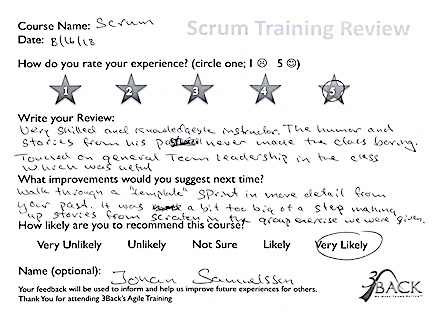 Course Name: Scrum
Scrum Training Review
Date: 8/16/18
How do you rate your experience? (circle one; 1 ☹ 5 ☺)
1 2 3 4 5
Write your Review:
Very skilled and knowledgeable instructor. The humor and
stories from his past never made the class boring.
Touched on general Team Leadership in the class
which was useful
What improvements would you suggest next time?
Walk through a "template" sprint in more detail from
your past. It was a bit too big of a step making
up stories from scratch in the group exercise we were given.
How likely are you to recommend this course?
Very Unlikely Unlikely Not Sure Likely Very Likely
Name (optional): Johan Samuelsson
3BACK
Your feedback will be used to inform and help us improve future experiences for others.
Thank You for attending 3Back's Agile Training